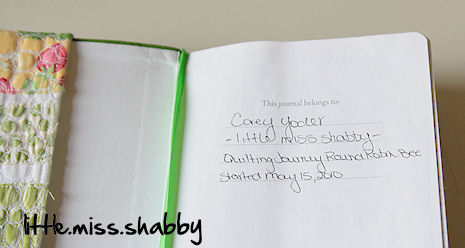 This journal belongs to:
Corey Yoder
- little miss shabby -
Quilting Journey Round Robin Bee
started May 15, 2010
little.miss.shabby